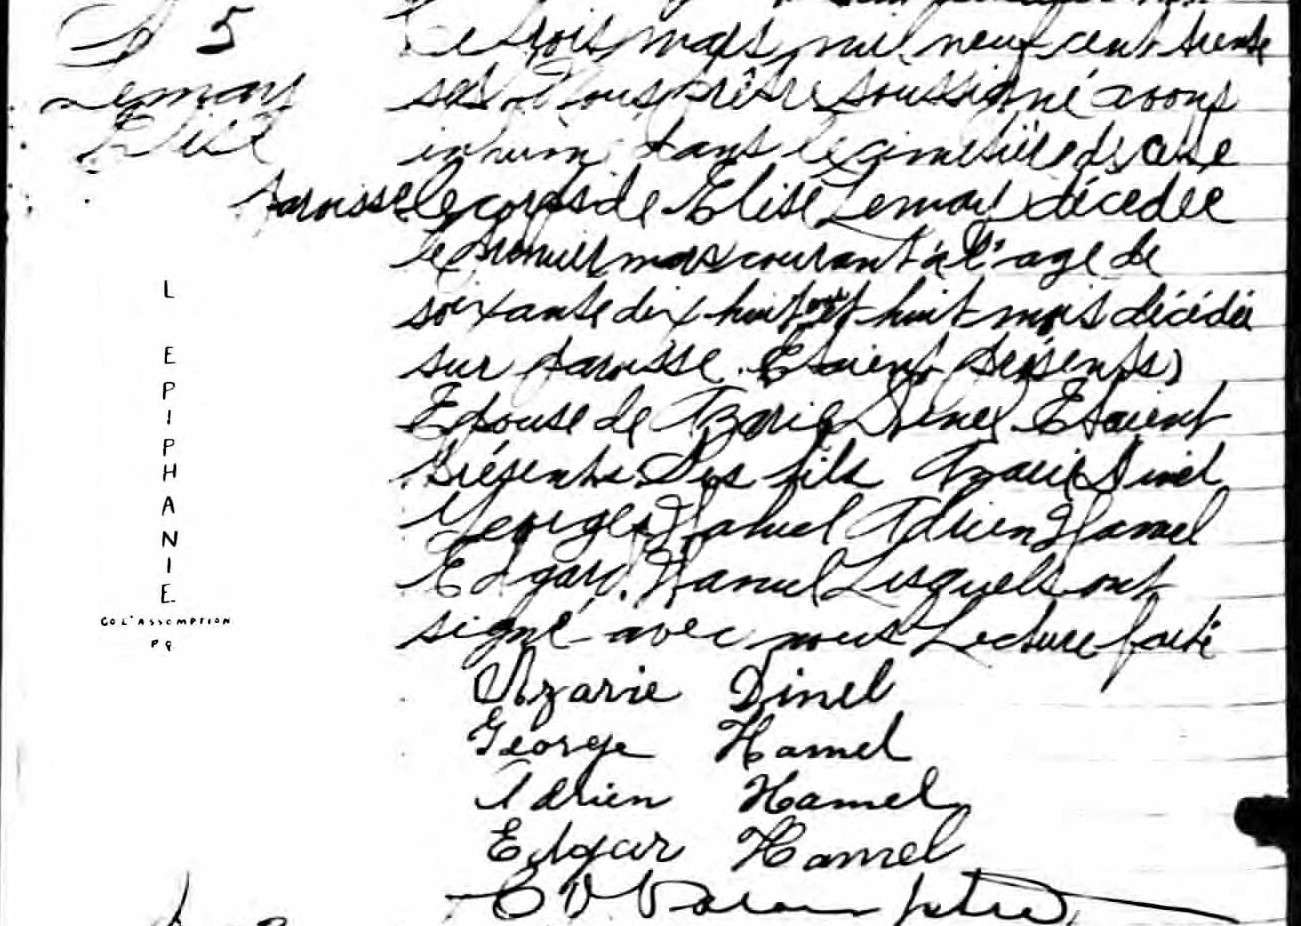 S 5
Lemay
Elise
Le trois mars mil neuf cent trente
sept Nous prêtre soussigné avons
inhumé dans le cimetière de cette
paroisse le corps de Elise Lemay décédée
le premier mars courant à l'age de
soixante dix-huit ans et huit mois décédée
sur paroisse. Etaient présents)
Epouse de Azarie Dinel Etaient
Présents Ses fils Azarie Dinel
Georges Hamel Adrien Hamel
Edgard Hamel Lesquels ont
signé avec nous Lecture faite
Azarie Dinel
George Hamel
Adrien Hamel
Edgar Hamel
ptre
L EPIPHANIE
CO L'ASSOMPTION
P Q